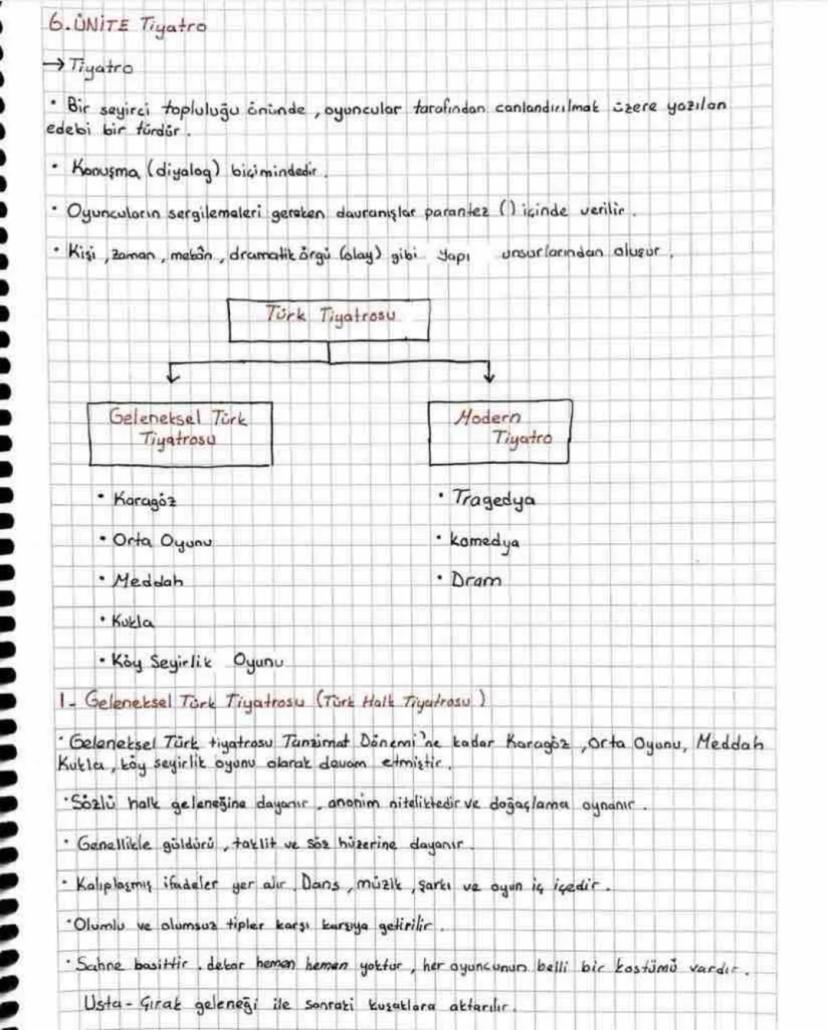 6.ÜNİTE Tiyatro
→ Tiyatro
• Bir seyirci topluluğu önünde, oyuncular tarafından canlandırılmak üzere yazılan
edebi bir türdür.
• Konuşma (diyalog) biçimindedir.
• Oyuncuların sergilemeleri gereken davranışlar parantez () içinde verilir.
• Kişi, zaman, mekân, dramatik örgü (olay) gibi yapı unsurlarından oluşur.
Türk Tiyatrosu
Geleneksel Türk
Tiyatrosu
• Karagöz
• Orta Oyunu
• Meddah
• Kukla
• Köy Seyirlik Oyunu
Modern
Tiyatro
• Tragedya
• komedya
• Dram
1- Geleneksel Türk Tiyatrosu (Türk Halk Tiyatrosu)
• Geleneksel Türk tiyatrosu Tanzimat Dönemi'ne kadar Karagöz, Orta Oyunu, Meddah
Kukla, köy seyirlik oyunu olarak devam etmiştir.
• Sözlü halk geleneğine dayanır, anonim niteliktedir ve doğaçlama oynanır.
• Genellikle güldürü, taklit ve söz hüzerine dayanır.
• Kalıplaşmış ifadeler yer alır. Dans, müzik, şarkı ve oyun iç içedir.
• Olumlu ve olumsuz tipler karşı karşıya getirilir.
• Sahne basittir, dekor hemen hemen yoktur, her oyuncunun belli bir kostümü vardır.
Usta-Çırak geleneği ile sonraki kuşaklara aktarılır.